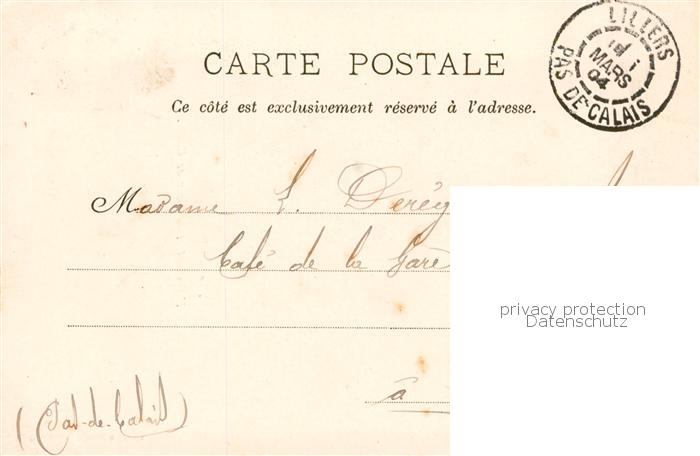 LILLERS
MARS
04
PAS DE CALAIS
CARTE POSTALE
Ce côté est exclusivement réservé à l'adresse.
Madame
Café de la Gare
privacy protection
Datenschutz
à
(Pas-de-Calais)